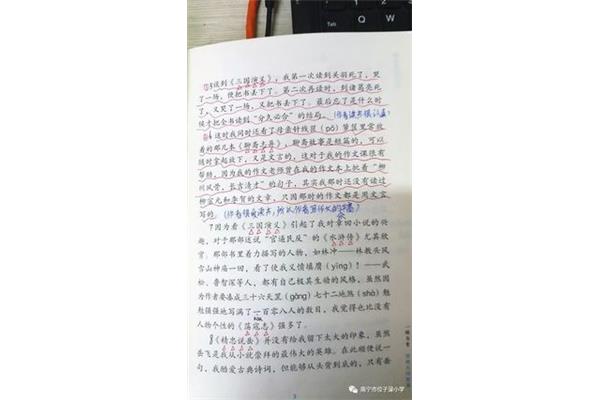 谈到《三国演义》，我第一次读到关羽死了，哭
了一场，便把书丢下了。第二次再读时，到诸葛亮死
了，又哭了一场，又把书丢下了。最后忘了是什么时
候才把全书读到“分久必合”的结局。
这时我同时还看了母亲针线笸(pǒ)箩筐里常放
着的那几本《聊斋志异》，聊斋故事是短篇的，可以
随时拿起放下，又是文言的，这对于我的作文课很有
帮助，因为我的作文老师曾在我的作文本上批着“柳
州风骨，长吉清才”的句子，其实我那时还没有读过
柳宗元和李贺的文章，只因那时的作文都是用文言
写的。
7因为看《三国演义》引起了我对章回小说的兴
趣，对于那部述说“官逼民反”的《水浒传》尤其欣
赏。那部书里着力描写的人物，如林冲——林教头风
雪山神庙一回，看了使我义愤填膺(yīng)！——武
松、鲁智深等人，都有自己极其生动的风格，虽然因
为作者要凑成三十六天罡(gāng)七十二地煞(shà)勉
勉强强地写满了一百零八人的数目，我觉得也比没有
人物个性的《荡寇志》强多了。
《精忠说岳》并没有给我留下太大的印象，虽然
岳飞是我从小就崇拜的最伟大的英雄。在此顺便说一
句，我酷爱古典诗词，但能够从头背到底的，只有岳
3
南宁市位子渌小学
Tab
Q
W